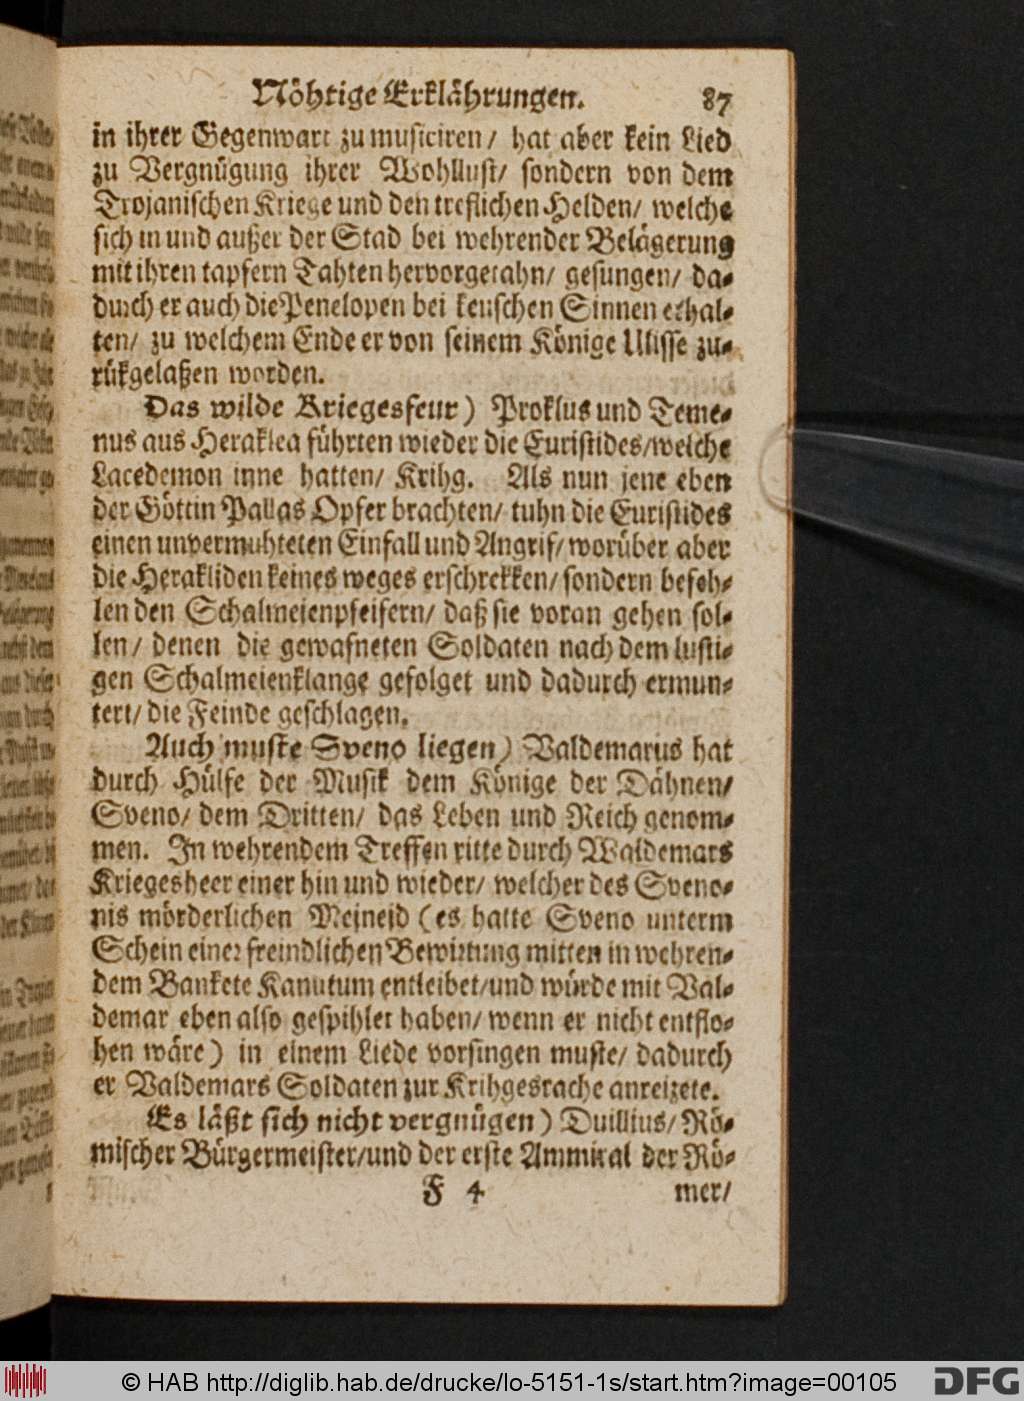 Nöhtige Erklährungen. 87
in ihrer Gegenwart zu musiciren/ hat aber kein Lied
zu Vergnügung ihrer Wohllust/ sondern von dem
Trojanischen Kriege und den treflichen Helden/ welche
sich in und außer der Stad bei wehrender Belägerung
mit ihren tapfern Tahten hervorgetahn/ gesungen/ da-
durch er auch die Penelopen bei keuschen Sinnen erhal-
ten/ zu welchem Ende er von seinem Könige Ulisse zu-
rükgelaßen worden.
Das wilde Kriegesfeur) Proklus und Teme-
nus aus Heraklea führten wieder die Euristides/welche
Lacedemon inne hatten/ Krihg. Als nun jene eben
der Göttin Pallas Opfer brachten/ tuhn die Euristides
einen unvermuhteten Einfall und Angrif/ worüber aber
die Herakliden keines weges erschrekken/ sondern befeh-
len den Schalmeienpfeifern/ daß sie voran gehen sol-
len/ denen die gewafneten Soldaten nach dem lusti-
gen Schalmeienklange gefolget und dadurch ermun-
tert/ die Feinde geschlagen.
Auch muste Sveno liegen) Valdemarus hat
durch Hülfe der Musik dem Könige der Dähnen/
Sveno/ dem Dritten/ das Leben und Reich genom-
men. In wehrendem Treffen ritte durch Waldemars
Kriegesheer einer hin und wieder/ welcher des Sveno-
nis mörderlichen Meineid (es hatte Sveno unterm
Schein einer freindlichen Bewirtung mitten in wehren-
dem Bankete Kanutum entleibet/und würde mit Val-
demar eben also gespihlet haben/ wenn er nicht entflo-
hen wäre) in einem Liede vorsingen muste/ dadurch
er Valdemars Soldaten zur Krihgesrache anreizete.
Es läßt sich nicht vergnügen) Duillius/ Rö-
mischer Bürgermeister/und der erste Ammiral der Rö-
F 4 mer/
© HAB http://diglib.hab.de/drucke/lo-5151-1s/start.htm?image=00105 DFG